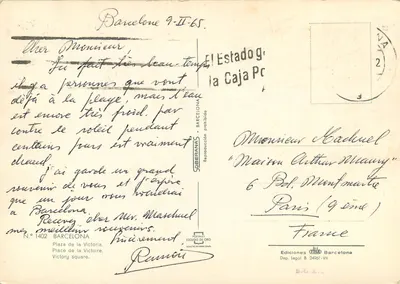 Barcelone 9-II-65.
Cher Monsieur,
Ici fait très beau temps,
il y a personnes que vont
dejà à la plage, mais l'eau
est encore très froid. par
contre le soleil pendant
certains jours est vraiment
chaud.
J'ai garde un grand
souvenir de vous et j'espère
que un jour vous viendrai
à Barcelona.
Recevez cher Mr. Maduel
mes meilleurs souvenirs.
Sincèrement
Ramón
N.º 1402 BARCELONA
Plaza de la Victoria.
Place de la Victoire.
Victory square.
SOBERANAS
BARCELONA
El Estado g
la Caja Po
2
Monsieur Maduel
"Maison Arthur Maury"
6 Bol. Montmartre
Paris (9ème)
France
Ediciones Barcelona